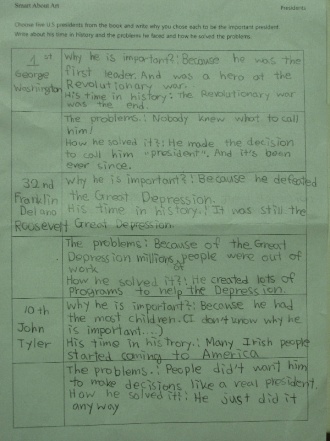 Smart About Art
Presidents
Choose five U.S. presidents from the book and write why you chose each to be the important president.
Write about his time in history and the problems he faced and how he solved the problems.
1st
George
Washington
Why he is important?: Because he was the
first leader. And was a hero at the
Revolutionary war.
His time in history: the Revolutionary war
was the end.
The problems.: Nobody knew what to call
him!
How he solved it?: He made the decision
to call him "president". And it's been
ever since.
32nd
Franklin
Delano
Roosevelt
Why he is important?: Because he defeated
the Great Depression.
His time in history.: It was still the
Great Depression.
The problems: Because of the Great
Depression millions of people were out of
work
How he solved it?: He created lots of
Programs to help the Depression.
10th
John
Tyler
Why he is important?: Because he had
the most children. (I don't know why he
is important...)
His time in history.: Many Irish people
started coming to America
The problems.: People did't want him
to make decisions like a real president.
How he solved it?: He just did it
any way